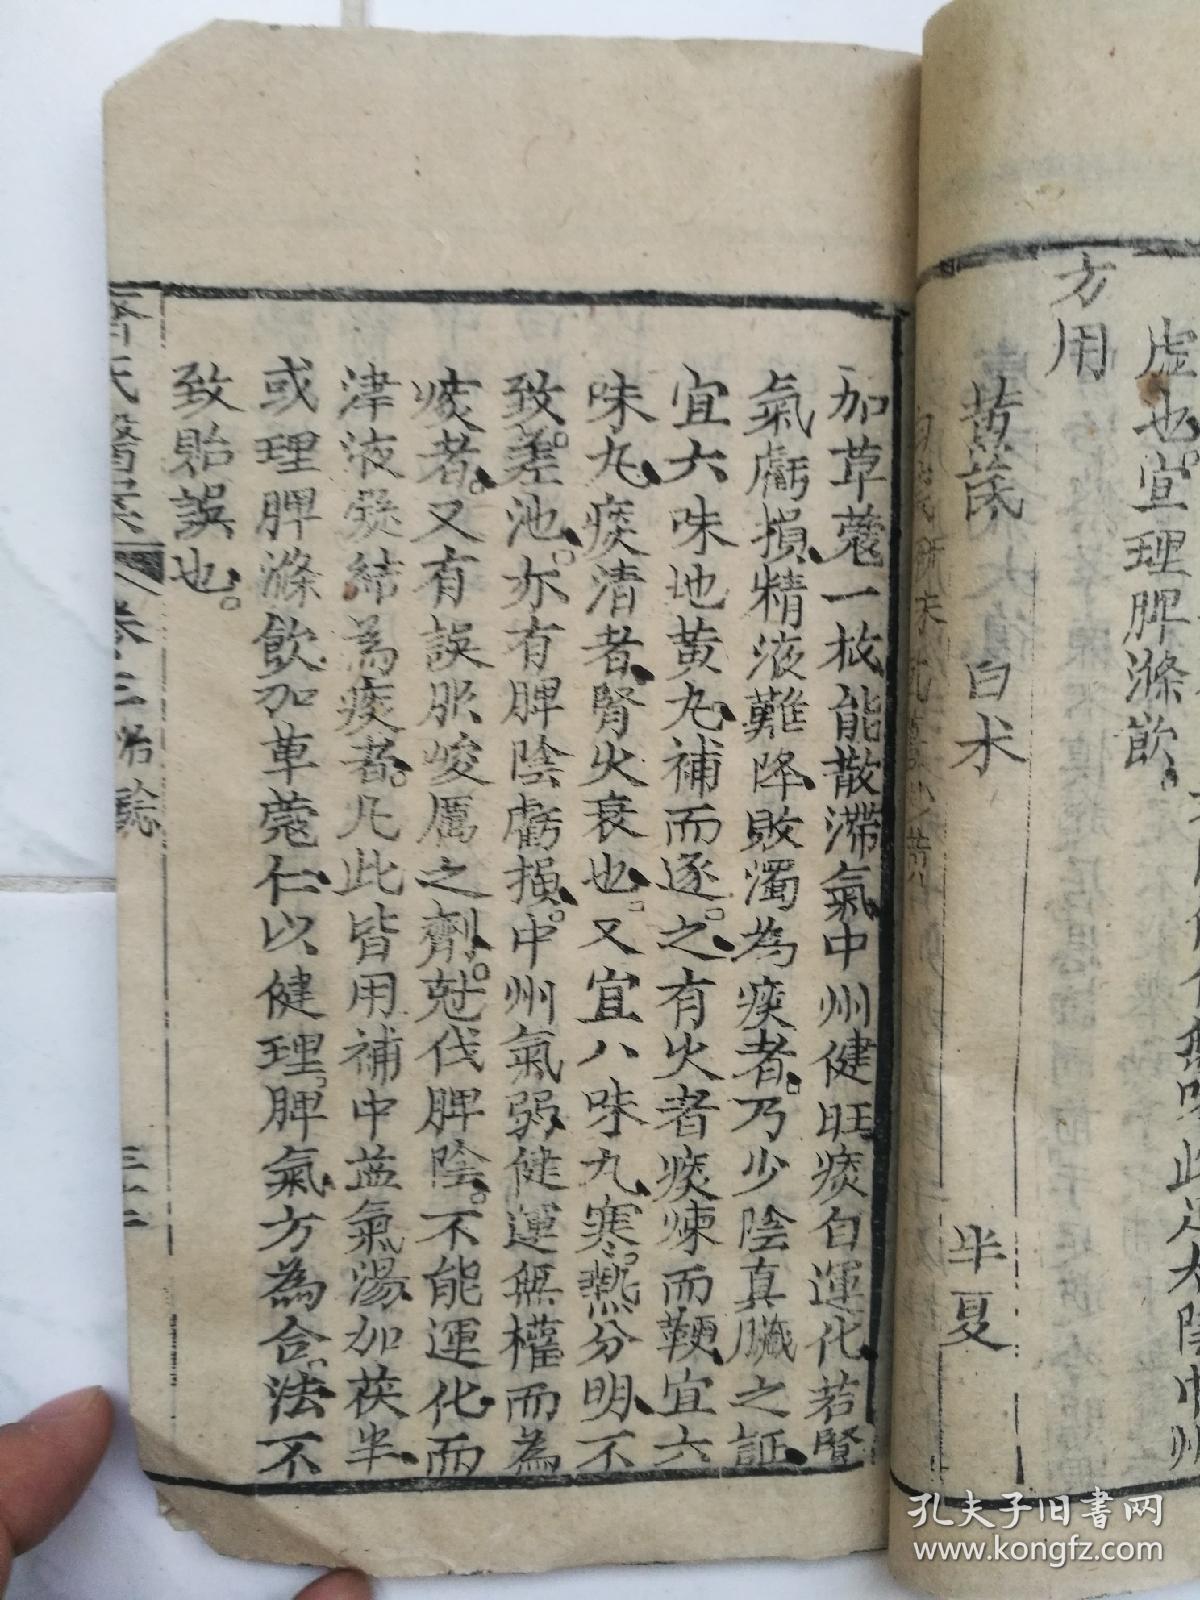 虛也宜理脾滌飲
方用
黄芪 白术 半夏
加草蔻一枚能散滯氣中州健旺痰自運化若腎
氣虧損精液難降敗濁為痰者乃少陰真臟之証
宜六味地黄丸補而逐之有火者痰煉而鞕宜六
味丸痰清者腎火衰也又宜八味丸寒熱分明不
致差池亦有脾陰虧損中州氣弱健運無權而為
痰者又有誤服峻厲之劑尅伐脾陰不能運化而
津液凝結為痰者凡此皆用補中益氣湯加茯半
或理脾滌飲加草蔻仁以健理脾氣方為合法不
致貽誤也
齊氏醫案 卷三
孔夫子旧书网
www.kongfz.com